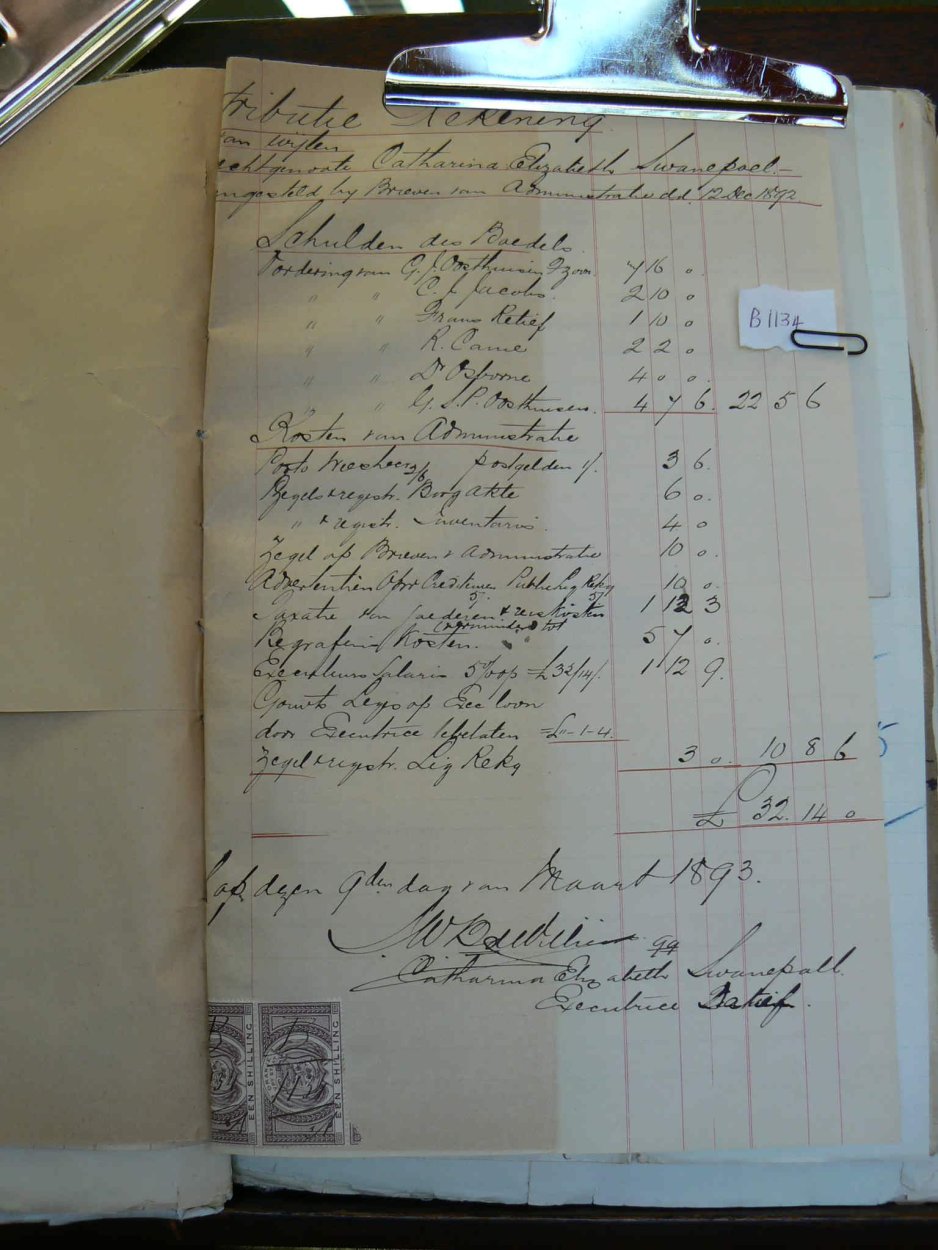 tributie Rekening
van wijlen
echtgenoote Catharina Elizabeth Swanepoel.-
ngesteld by Brieven van Administratie dd. 12 Dec 1892
Schulden des Boedels.
Vordering van G. J. Oosthuisen Fzoon 7 16 0.
" " C. J. Jacobs. 2 10 0
" " Frans Retief 1 10 0
" " R. Came 2 2 0
" " Dr Osborne 4 0 0.
" " G. S. P. Oosthuisen. 4 7 6. 22 5 6
Kosten van Administratie
Porto Weesheer 2/6 postgelden 1/. 3 6.
Zegels & regstr. Borg Akte 6 0.
" & regstr. Inventaris. 4 0
Zegel op Brieven v Administratie 10 0.
Advertentien Opr Crediteuren Public Liq Rekg 10 0.
5/ 5/
Taxatie van goederen & reiskosten 1 12 3
verminderd tot
Begrafenis Kosten. 5 7 0.
Executeurs Salaris 5% op £32/14/. 1 12 9.
Gouvts Leges op Exec loon
door Executrice te betalen =£"-1-4.
Zegel & regstr. Liq Rekg 3 0. 10 8 6
£ 32. 14 0
op dezen 9den dag van Maart 1893.
qq
Catharina Elizabeth Swanepoell.
Executrice Datief.
B1134
EEN SHILLING
EEN SHILLING